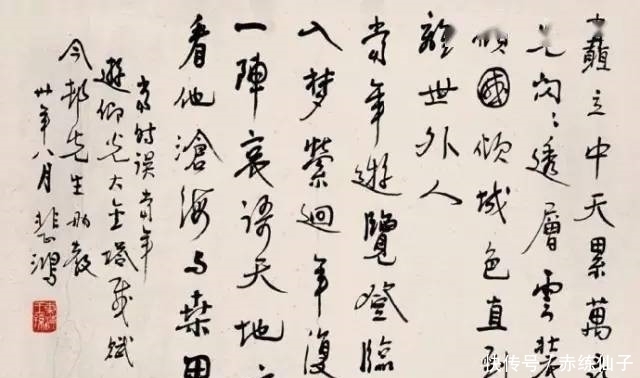 矗立中天累萬
光閃閃透層雲
傾國傾城色直
世外人
當年遊覽登臨
入夢縈迴年復
一陣哀天地
看他滄海與桑田
時誤當年
遊仰光大金塔賦
今邦先生教
卅年八月 悲鴻
快传号/赤练仙子